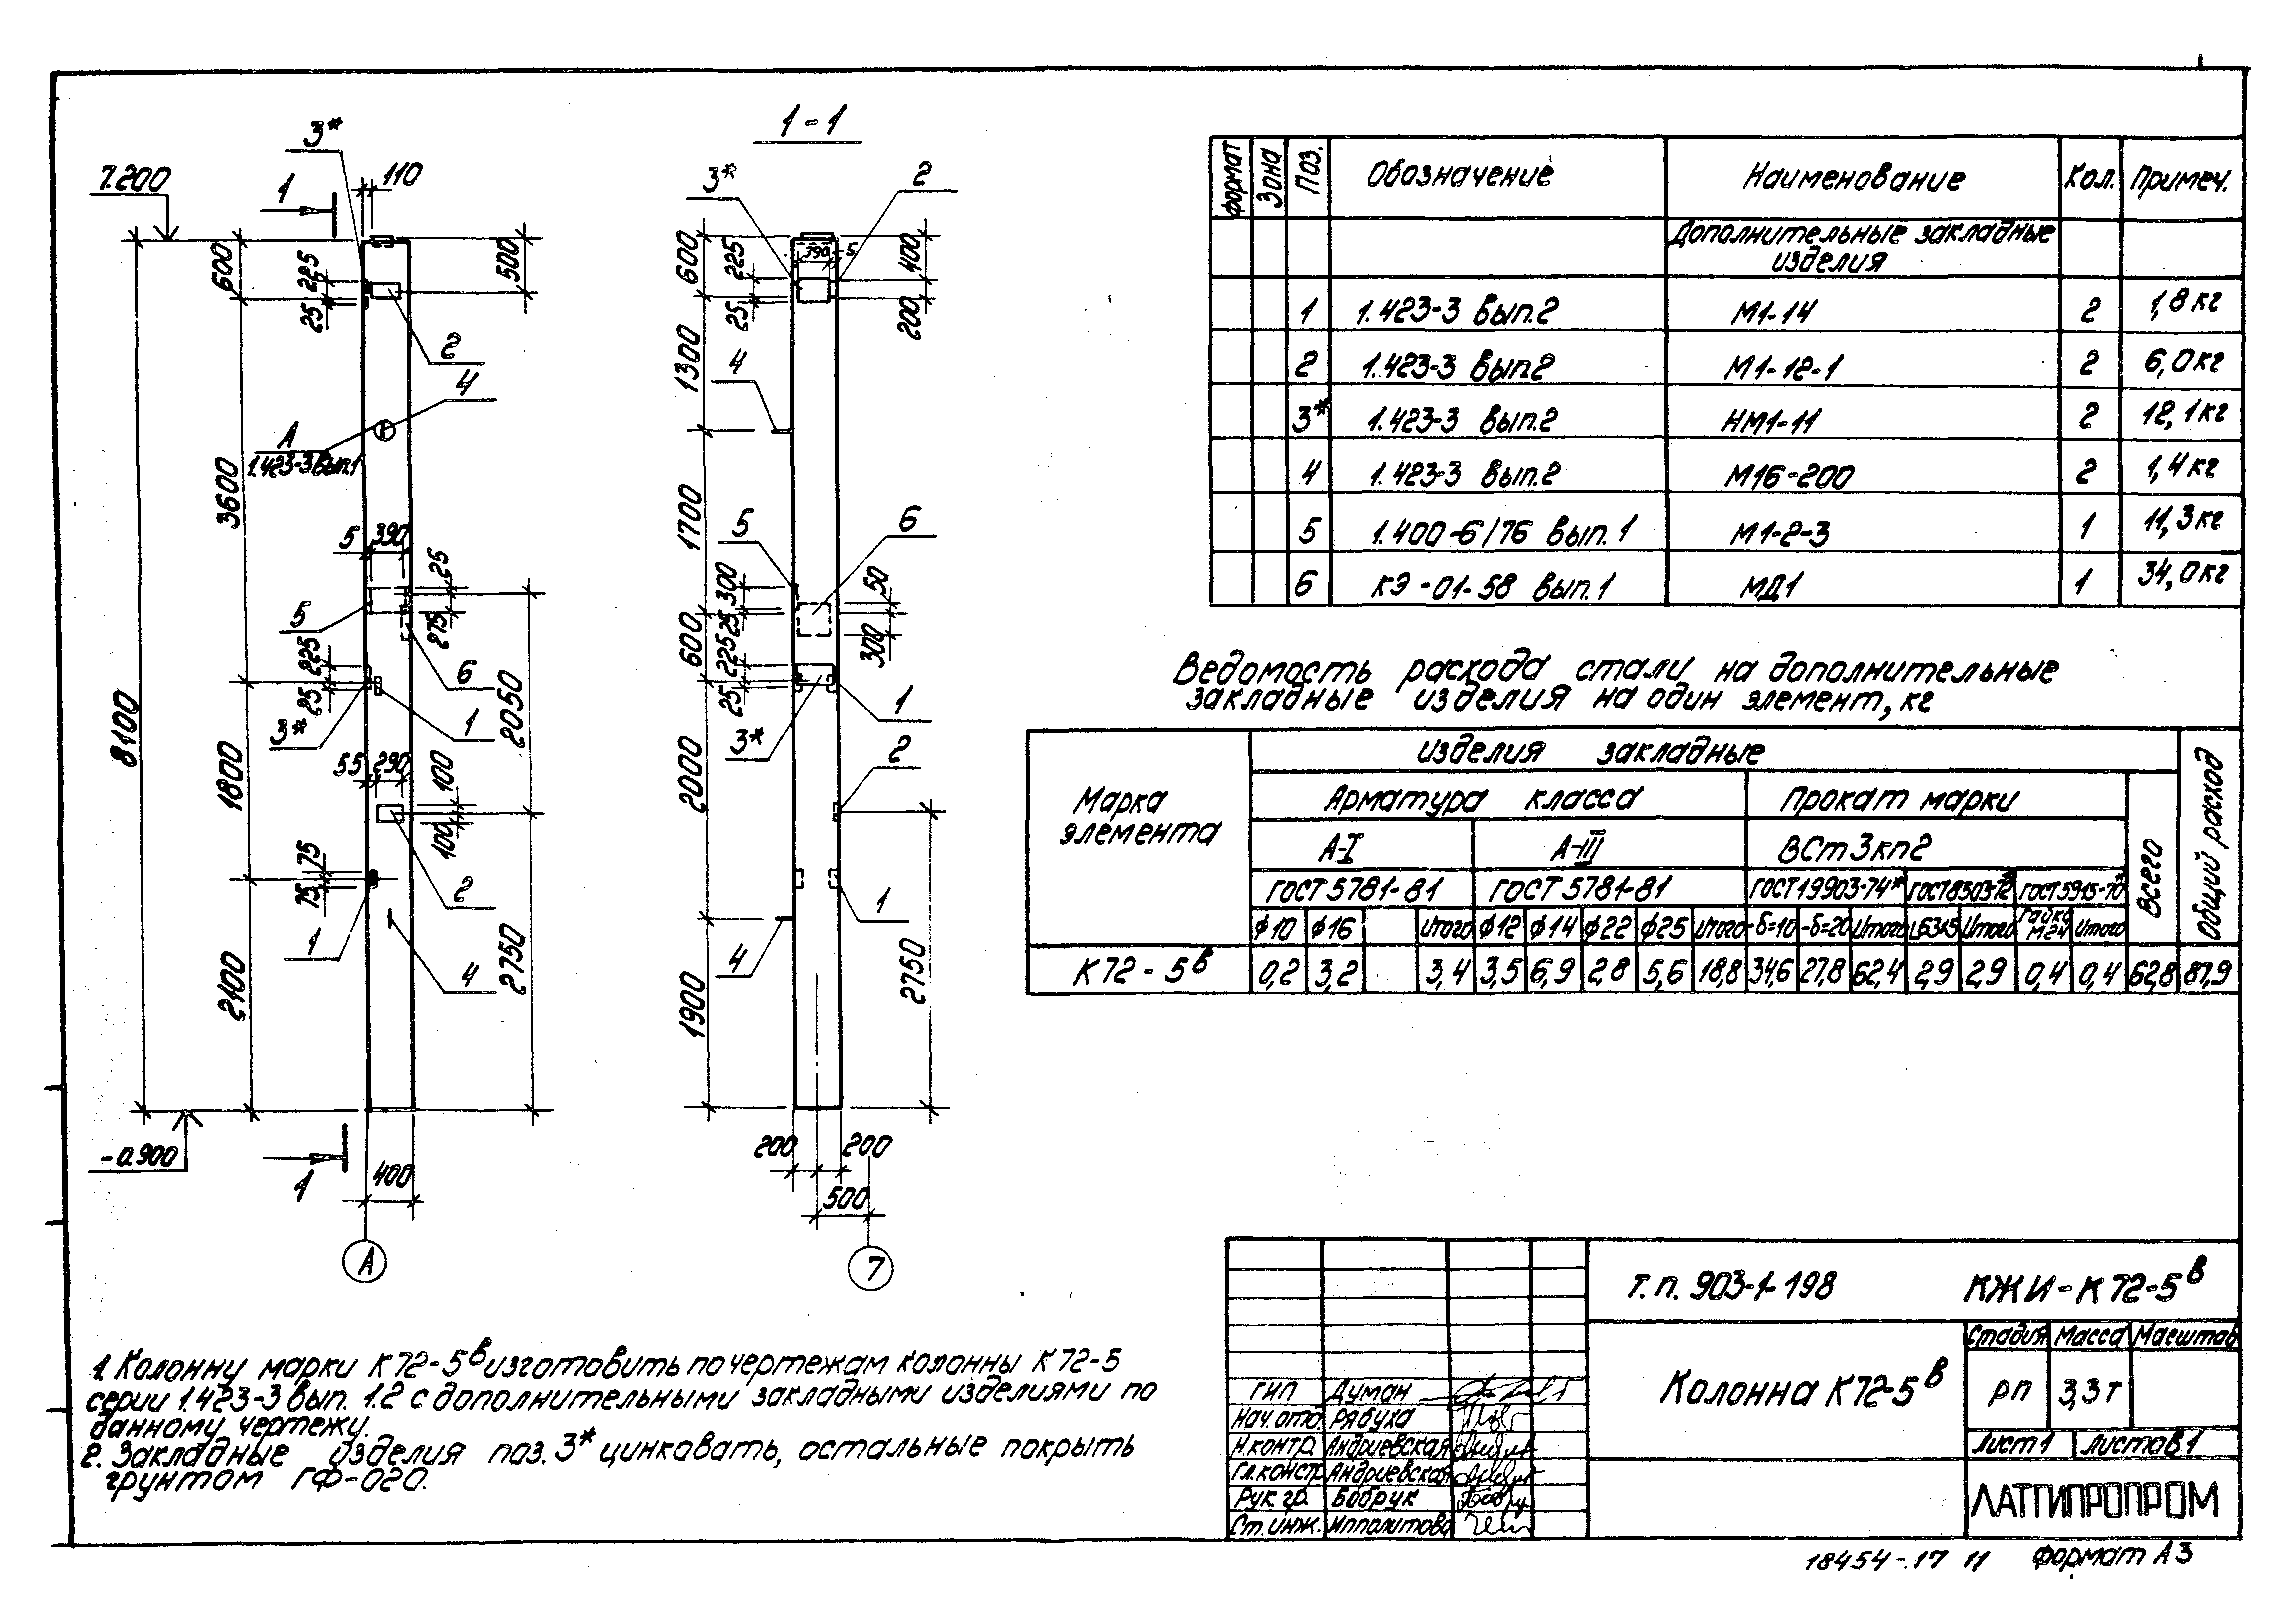 1-1
3*
7.200
1
110
600
225
25
500
2
4
А
1.423-3 вып.1
3600
5
390
25
5
275
225
25
6
3*
1
2050
8100
1800
55
290
100
100
75
75
2
1
4
2750
2100
-0.900
1
400
А
3*
2
600
225
390
5
400
25
200
1300
4
1700
5
6
300
50
25
600
225
300
25
1
3*
2
2000
1
4
2750
1900
200
200
500
7
формат Зона Поз. Обозначение Наименование Кол. Примеч.
Дополнительные закладные
изделия
1 1.423-3 вып.2 М1-14 2 1,8 кг
2 1.423-3 вып.2 М1-12-1 2 6,0 кг
3* 1.423-3 вып.2 НМ1-11 2 12,1 кг
4 1.423-3 вып.2 М16-200 2 1,4 кг
5 1.400-6/76 вып.1 М1-2-3 1 11,3 кг
6 КЭ-01-58 вып.1 МД1 1 34,0 кг
Ведомость расхода стали на дополнительные
закладные изделия на один элемент, кг
Марка
элемента
изделия закладные
Общий расход
Арматура класса Прокат марки
Всего
А-I А-III ВСт3кп2
ГОСТ 5781-81 ГОСТ 5781-81 ГОСТ19903-74* ГОСТ8503-72* ГОСТ5915-70*
ф10 ф16 Итого ф12 ф14 ф22 ф25 Итого -δ=10 -δ=20 Итого L63х5 Итого Гайка М24 Итого
К72-5в 0,2 3,2 3,4 3,5 6,9 2,8 5,6 18,8 34,6 27,8 62,4 2,9 2,9 0,4 0,4 62,8 87,9
1. Колонну марки К72-5в изготовить по чертежам колонны К72-5
серии 1.423-3 вып. 1.2 с дополнительными закладными изделиями по
данному чертежу.
2. Закладные изделия поз.3* цинковать, остальные покрыть
грунтом ГФ-020.
т.п. 903-1-198 КЖИ-К72-5в
Стадия Масса Масштаб
Колонна К72-5в
РП 3,3т
Лист 1 Листов 1
ЛАТГИПРОПРОМ
ГИП Думан
Нач.отд. Рябуха
Н.контр. Андриевская
Гл.констр. Андриевская
Рук.гр. Бобрук
Ст.инж. Ипполитова
18454-17 11 формат А3